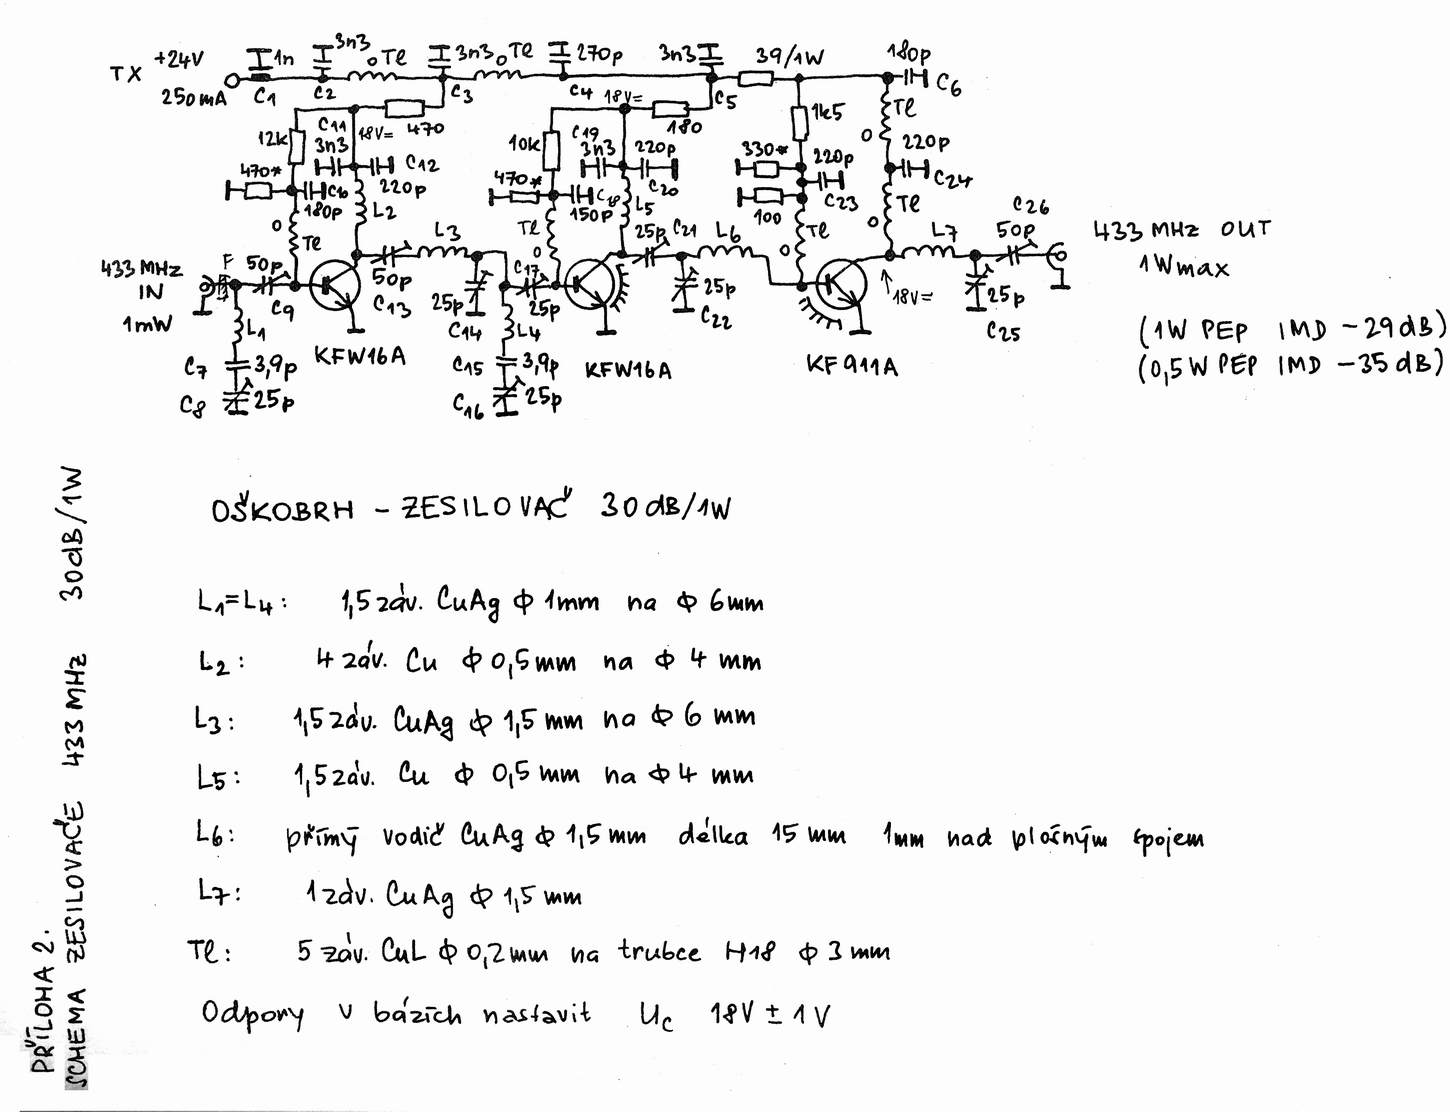 TX +24V
250mA
1n
C1
3n3
C2
Tl
3n3
C3
Tl
270p
C4
3n3
C5
39/1W
180p
C6
12k
C11
3n3
18V=
470
C12
220p
470*
C10
180p
Tl
L2
10k
C19
3n3
18V=
180
220p
C20
470*
150p
Tl
L5
1k5
330*
220p
C23
100
Tl
Tl
220p
C24
Tl
433 MHz
IN
1mW
F
50p
C9
L1
C7
3,9p
C8
25p
KFW16A
50p
C13
L3
25p
C14
C17
25p
L4
C15
3,9p
C16
25p
KFW16A
25p
C21
L6
25p
C22
KF911A
18V=
L7
C26
50p
25p
C25
433 MHz OUT
1Wmax
(1W PEP IMD -29dB)
(0,5W PEP IMD -35dB)
OŠKOBRH - ZESILOVAČ 30dB/1W
L1=L4: 1,5záv. CuAg ϕ 1mm na ϕ 6mm
L2: 4 záv. Cu ϕ 0,5mm na ϕ 4 mm
L3: 1,5záv. CuAg ϕ 1,5mm na ϕ 6 mm
L5: 1,5záv. Cu ϕ 0,5mm na ϕ 4 mm
L6: přímý vodič CuAg ϕ 1,5mm délka 15 mm 1mm nad plošným spojem
L7: 1záv. CuAg ϕ 1,5mm
Tl: 5 záv. CuL ϕ 0,2mm na trubce H18 ϕ 3mm
Odpory v bázích nastavit Uc 18V ± 1V
PŘÍLOHA 2.
SCHEMA ZESILOVAČE 433 MHz 30dB/1W